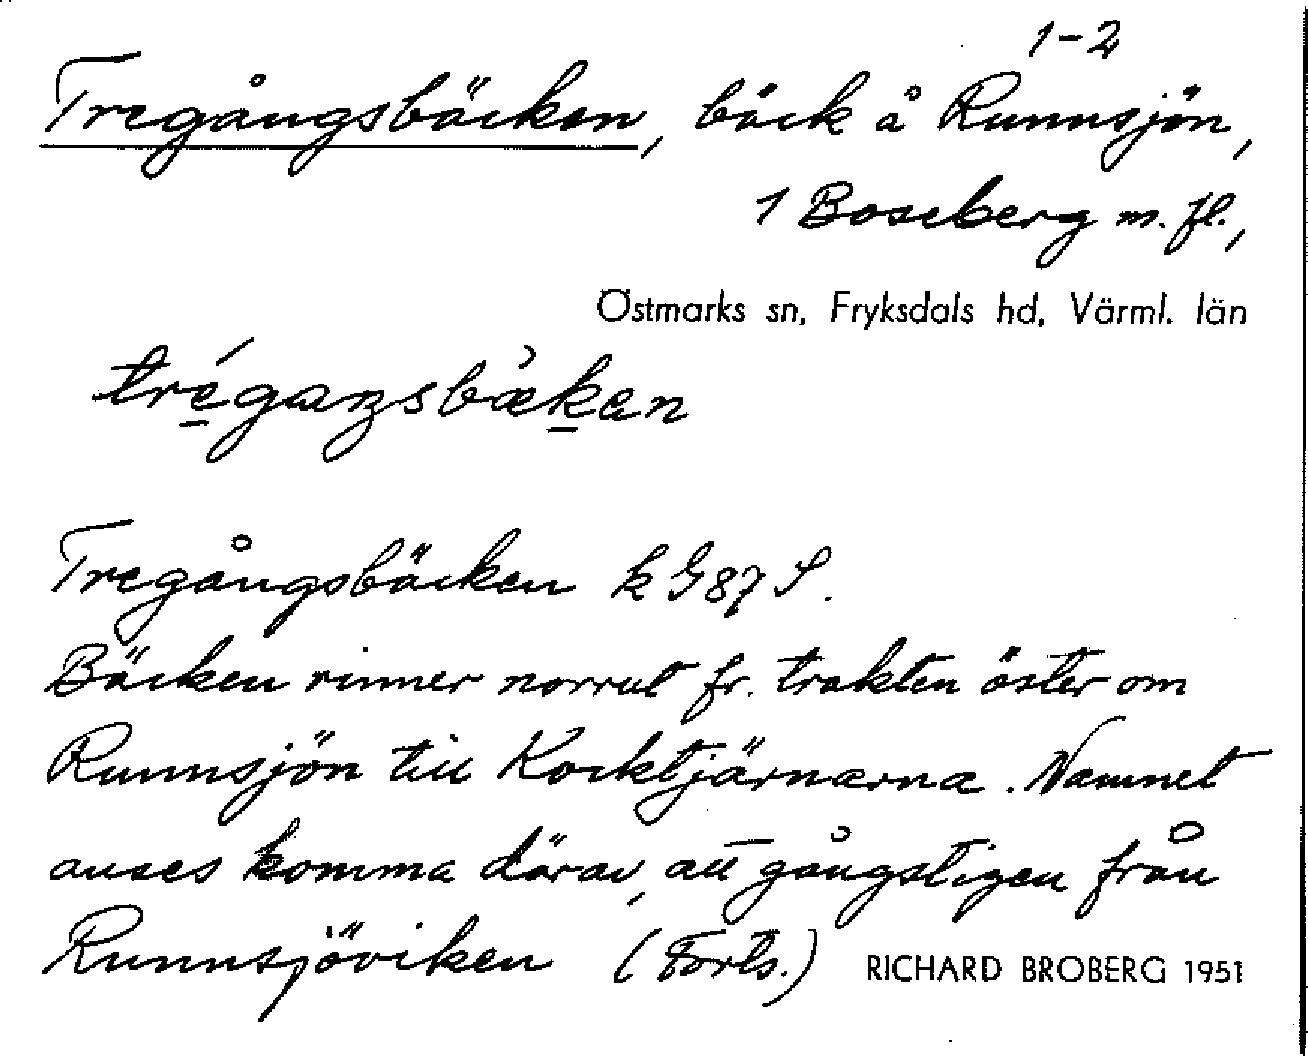 1-2
Tregångsbäcken, bäck å Runnsjön,
1 Boseberg m. fl.,
Östmarks sn, Fryksdals hd, Värml. län
trégaŋsbæ̀kan
Tregångsbäcken k G87 S.
Bäcken rinner norrut fr. trakten öster om
Runnsjön till Kocktjärnarna. Namnet
anses komma därav, att gångstigen från
Runnsjöviken (Forts.) RICHARD BROBERG 1951